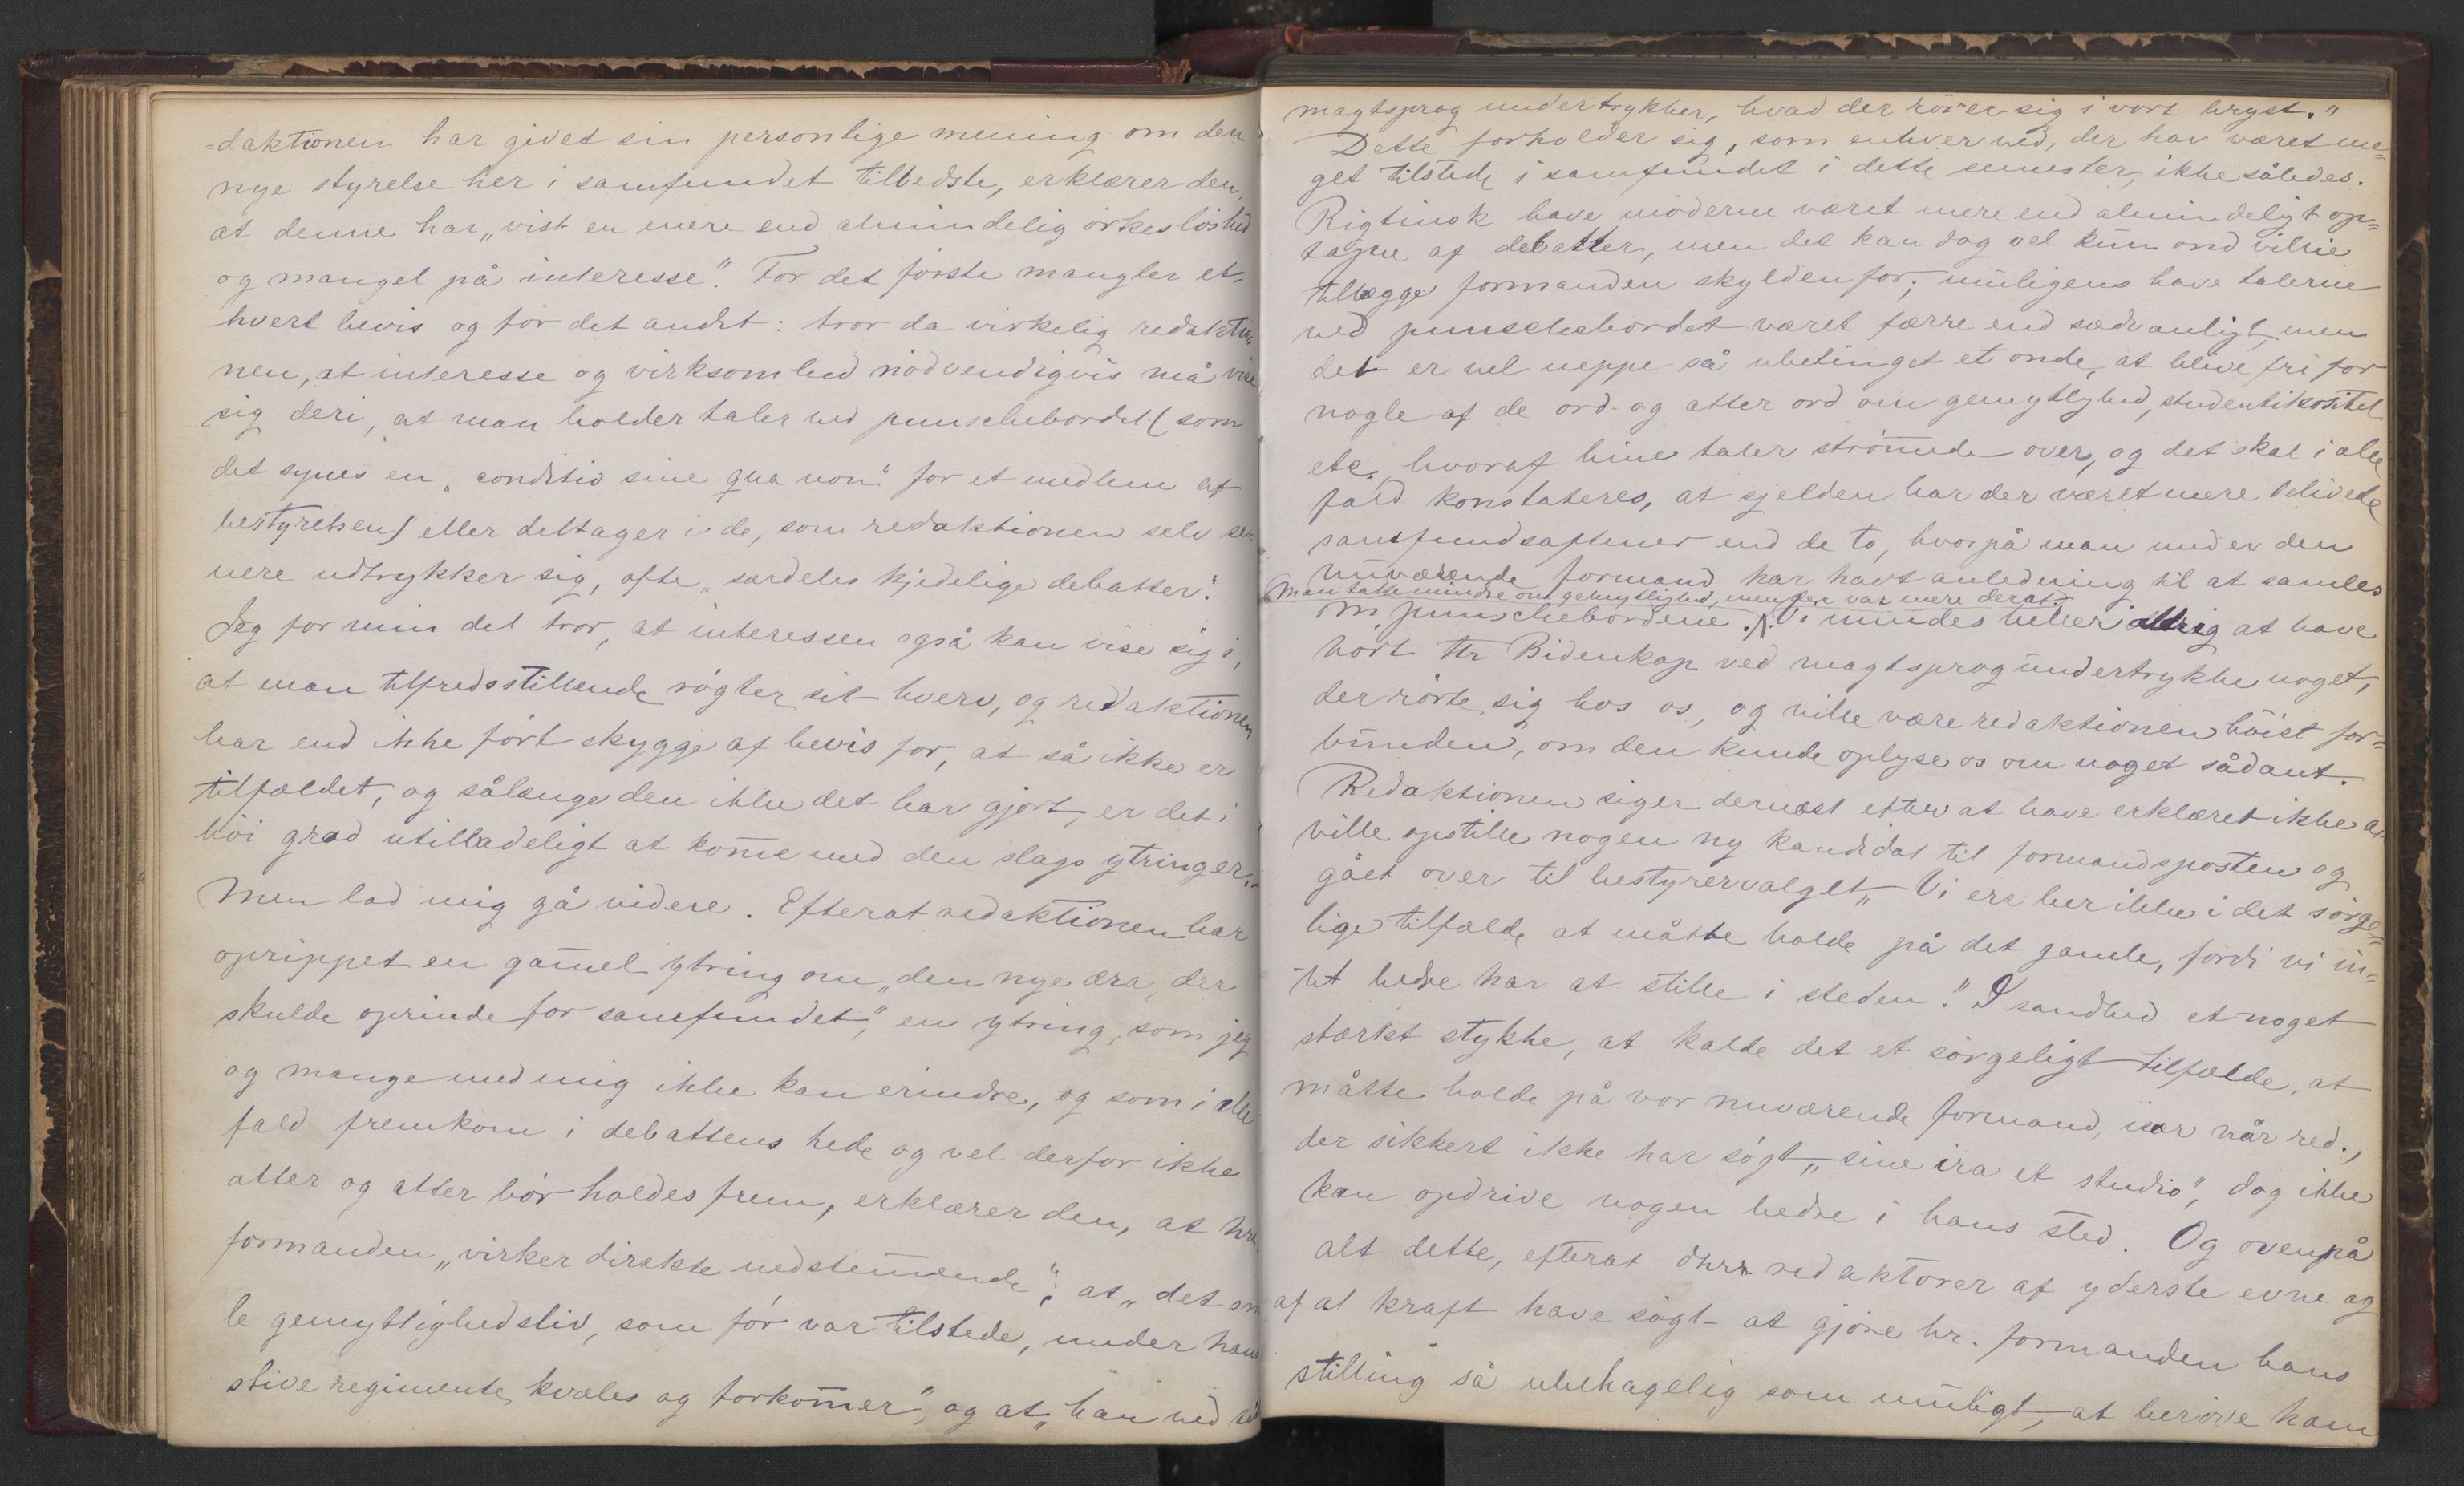 =daktionen har givet sin personlige mening om den
nye styrelse her i samfundet tilbedste, erklærer den,
at denne har „vist en mere end almindelig örkeslöshed
og mangel på interesse". For det förste mangler et-
hvert bevis og for det andet: tror da virkelig redaktio
nen, at interesse og virksomhed nödvendigvis må vise
sig deri, at man holder taler ved punschebordet (som
det synes en „conditio sine qua non" for et medlem af
bestyrelsen) eller deltager i de, som redaktionen selv se-
nere udtrykker sig, ofte „særdeles kjedelige debatter".
Jeg for min del tror, at interessen også kan vise sig i,
at man tilfredsstillende rögter sit hverv, og redaktionen
har end ikke fört skygge af bevis for, at så ikke er
tilfældet, og sålænge den ikke det har gjort, er det i
höi grad utilladeligt at kom̄e med den slags ytringer.-
Men lad mig gå videre. Efterat redaktionen har
oprippet en gam̄el ytring om „den nye æra, der
skulde oprinde for samfundet", en ytring, som jeg
og mange med mig ikke kan erindre, og som i alle
fald fremkom i debattens hede og vel derfor ikke
atter og atter bör holdes frem, erklærer den, at hr.
formanden „virker direkte nedstem̄ende"; at „det
le gemytlighedsliv, som för var tilstede, under hans
stive regimente kvæles og forkom̄er", og at „han ved sit
magtsprog undertrykker, hvad der rörer sig i vort bryst."
Dette forholder sig, som enhver ved, der har været me=
get tilstede i samfundet i dette semester, ikke således.
Rigtinok have möderne været mere end almindeligt op=
tagne af debatter, men det kan dog vel kun ond villie
tillægge formanden skylden for; muligens have talerne
ved punschebordet været færre end sædvanligt, men
det er vel neppe så ubetinget et onde, at blive fri for
nogle af de ord- og atter ord om gemytlighed, studentikositet
etc. hvoraf hine taler ström̄ede over, og det skal i alle
fald konstateres, at sjelden har der været mere belivede
samfundsaftener end de to, hvorpå man under den
nuværende formand har havt anledning til at samles
Man talte mindre om gemytlighed, men der var mere deraf.
om punschebordene. Vi mindes heller aldrig at have
hört Hr Bidenkap ved magtsprog undertrykke noget,
der rörte sig hos os, og ville være redaktionen höist for=
bunden, om den kunde oplyse os om noget sådant.
Redaktionen siger dernæst efter at have erklæret ikke at
ville opstille nogen ny kandidat til formandsposten og
gået over til bestyrervalget „Vi ere her ikke i det sörge=
lige tilfælde at måtte holde på det gamle, fordi vi in=
tet bedre har at stille i steden." I sandhed et noget
stærkt stykke, at kalde det et sörgeligt tilfælde, at
måtte holde på vor nuværende formand, især når red.,
der sikkert ikke har sögt „sine ira et studio", dog ikke
kan opdrive nogen bedre i hans sted. Og ovenpå
alt dette, efterat dhrr. redaktörer af yderste evne og
af al kraft have sögt at gjöre hr. formanden hans
stilling så ubehagelig som muligt, at beröve ham